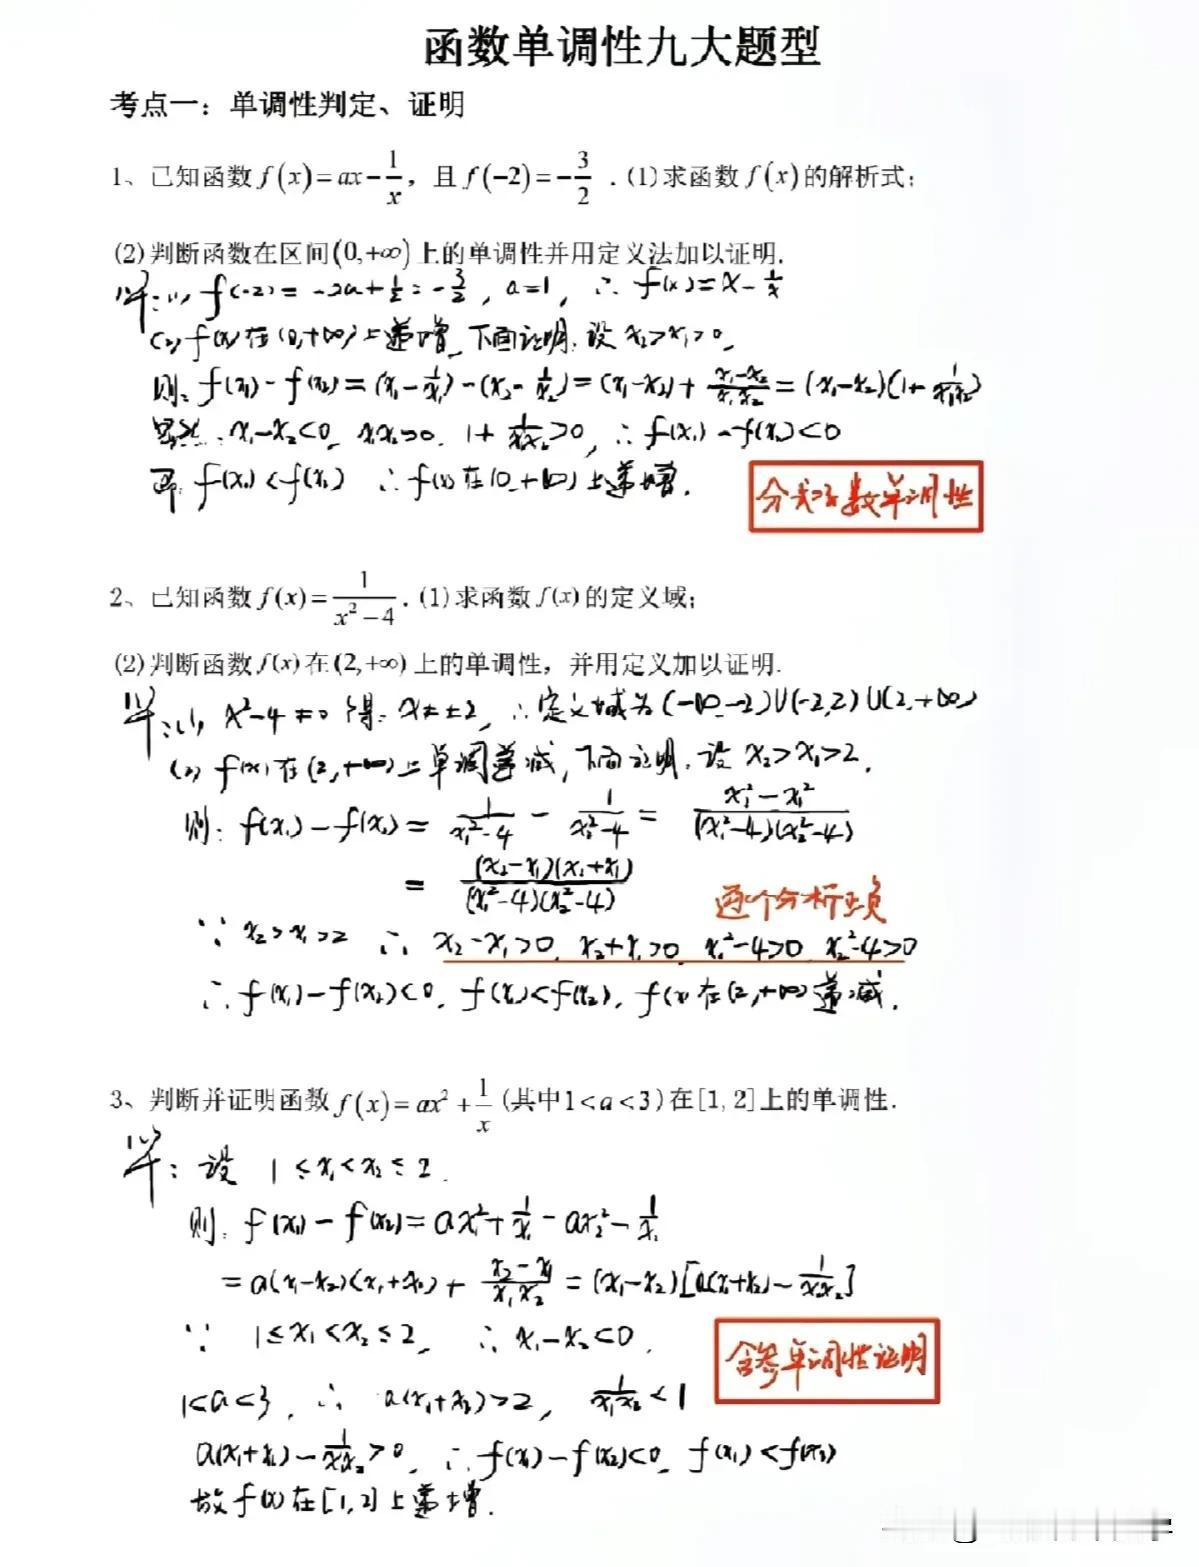 函数单调性九大题型
考点一：单调性判定、证明
1、已知函数 f(x)=ax-1/x，且 f(-2)=-3/2．(1)求函数 f(x) 的解析式；
(2)判断函数在区间(0,+∞)上的单调性并用定义法加以证明.
解：(1) f(-2)=-2a+1/2=-3/2，a=1，∴ f(x)=x-1/x
(2) f(x)在(0,+∞)上递增，下面证明：设 x₂>x₁>0，
则：f(x₁)-f(x₂)=(x₁-1/x₁)-(x₂-1/x₂)=(x₁-x₂)+(x₁-x₂)/(x₁x₂)=(x₁-x₂)(1+1/(x₁x₂))
显然：x₁-x₂<0，x₁x₂>0，1+1/(x₁x₂)>0，∴ f(x₁)-f(x₂)<0
即：f(x₁)<f(x₂) ∴f(x)在(0,+∞)上递增.
分式函数单调性
2、已知函数 f(x)=1/(x²-4)．(1)求函数 f(x) 的定义域；
(2)判断函数 f(x) 在(2,+∞)上的单调性，并用定义加以证明.
解：(1) x²-4≠0 得：x≠±2，∴定义域为(-∞,-2)∪(-2,2)∪(2,+∞)
(2) f(x)在(2,+∞)上单调递减，下面证明，设 x₂>x₁>2，
则：f(x₁)-f(x₂)=1/(x₁²-4)-1/(x₂²-4)=(x₂²-x₁²)/((x₁²-4)(x₂²-4))
=(x₂-x₁)(x₂+x₁)/((x₁²-4)(x₂²-4))
逐个分析正负
∵ x₂>x₁>2 ∴ x₂-x₁>0，x₂+x₁>0，x₁²-4>0，x₂²-4>0
∴ f(x₁)-f(x₂)<0，f(x₁)<f(x₂)，f(x)在(2,+∞)递减.
3、判断并证明函数 f(x)=ax²+1/x (其中1<a<3)在[1,2]上的单调性.
解：设 1≤x₁<x₂≤2.
则：f(x₁)-f(x₂)=ax₁²+1/x₁-ax₂²-1/x₂
=a(x₁-x₂)(x₁+x₂)+(x₂-x₁)/(x₁x₂)=(x₁-x₂)[a(x₁+x₂)-1/(x₁x₂)]
∵ 1≤x₁<x₂≤2，∴ x₁-x₂<0，
含参单调性证明
1<a<3，∴ a(x₁+x₂)>2，1/(x₁x₂)<1
a(x₁+x₂)-1/(x₁x₂)>0，∴ f(x₁)-f(x₂)<0，f(x₁)<f(x₂)
故f(x)在[1,2]上递增.